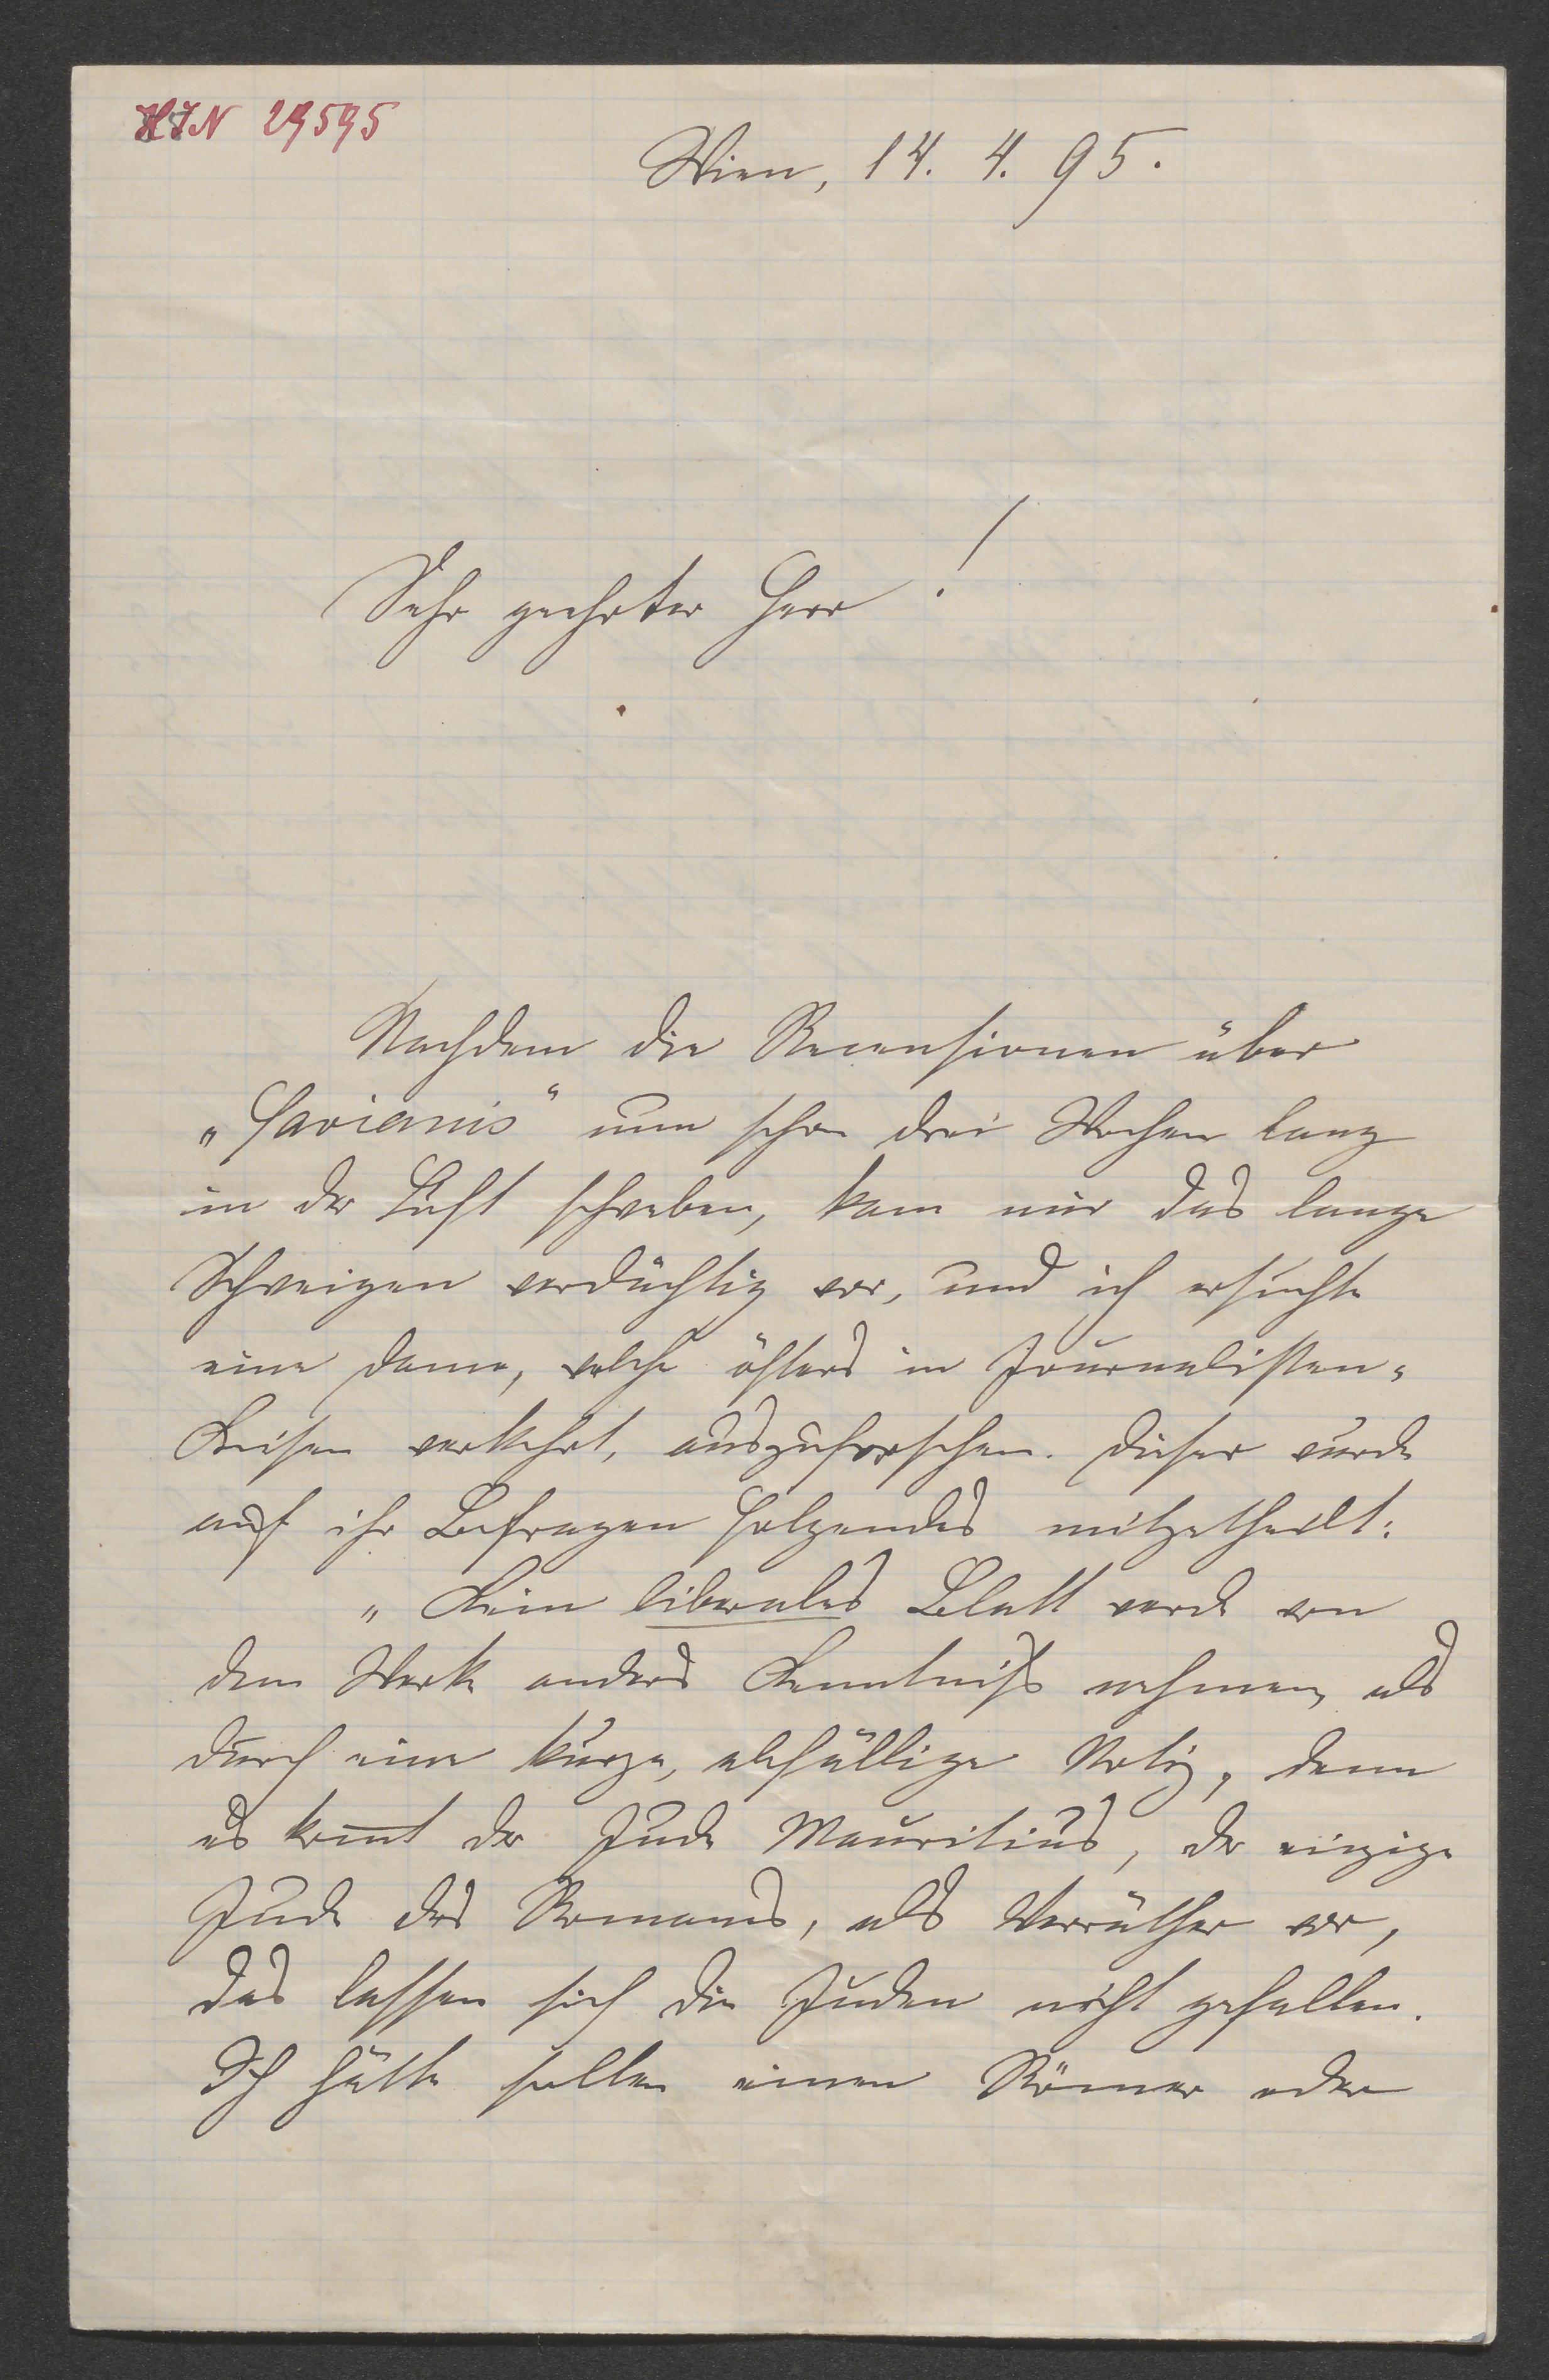 HJN 29595
Wien, 14. 4. 95.
Sehr geehrter Herr!
Nachdem die Recensionen über
„Gavianis“ nun schon drei Wochen lang
in der Luft schweben, kam mir das lange
Schweigen verdächtig vor, und ich ersuchte
eine Dame, welche öfters in Journalisten-
Kreisen verkehrt, auszuforschen. Dieser wurde
auf ihr Befragen Folgendes mitgetheilt:
„Kein liberales Blatt werde von
dem Werke anders Kenntniß nehmen, als
durch eine kurze, abfällige Notiz, denn
es komt der Jude Mauritius, der einzige
Jude des Romans, als Verräther vor,
das lassen sich die Juden nicht gefallen.
Ich hätte sollen einen Römer oder